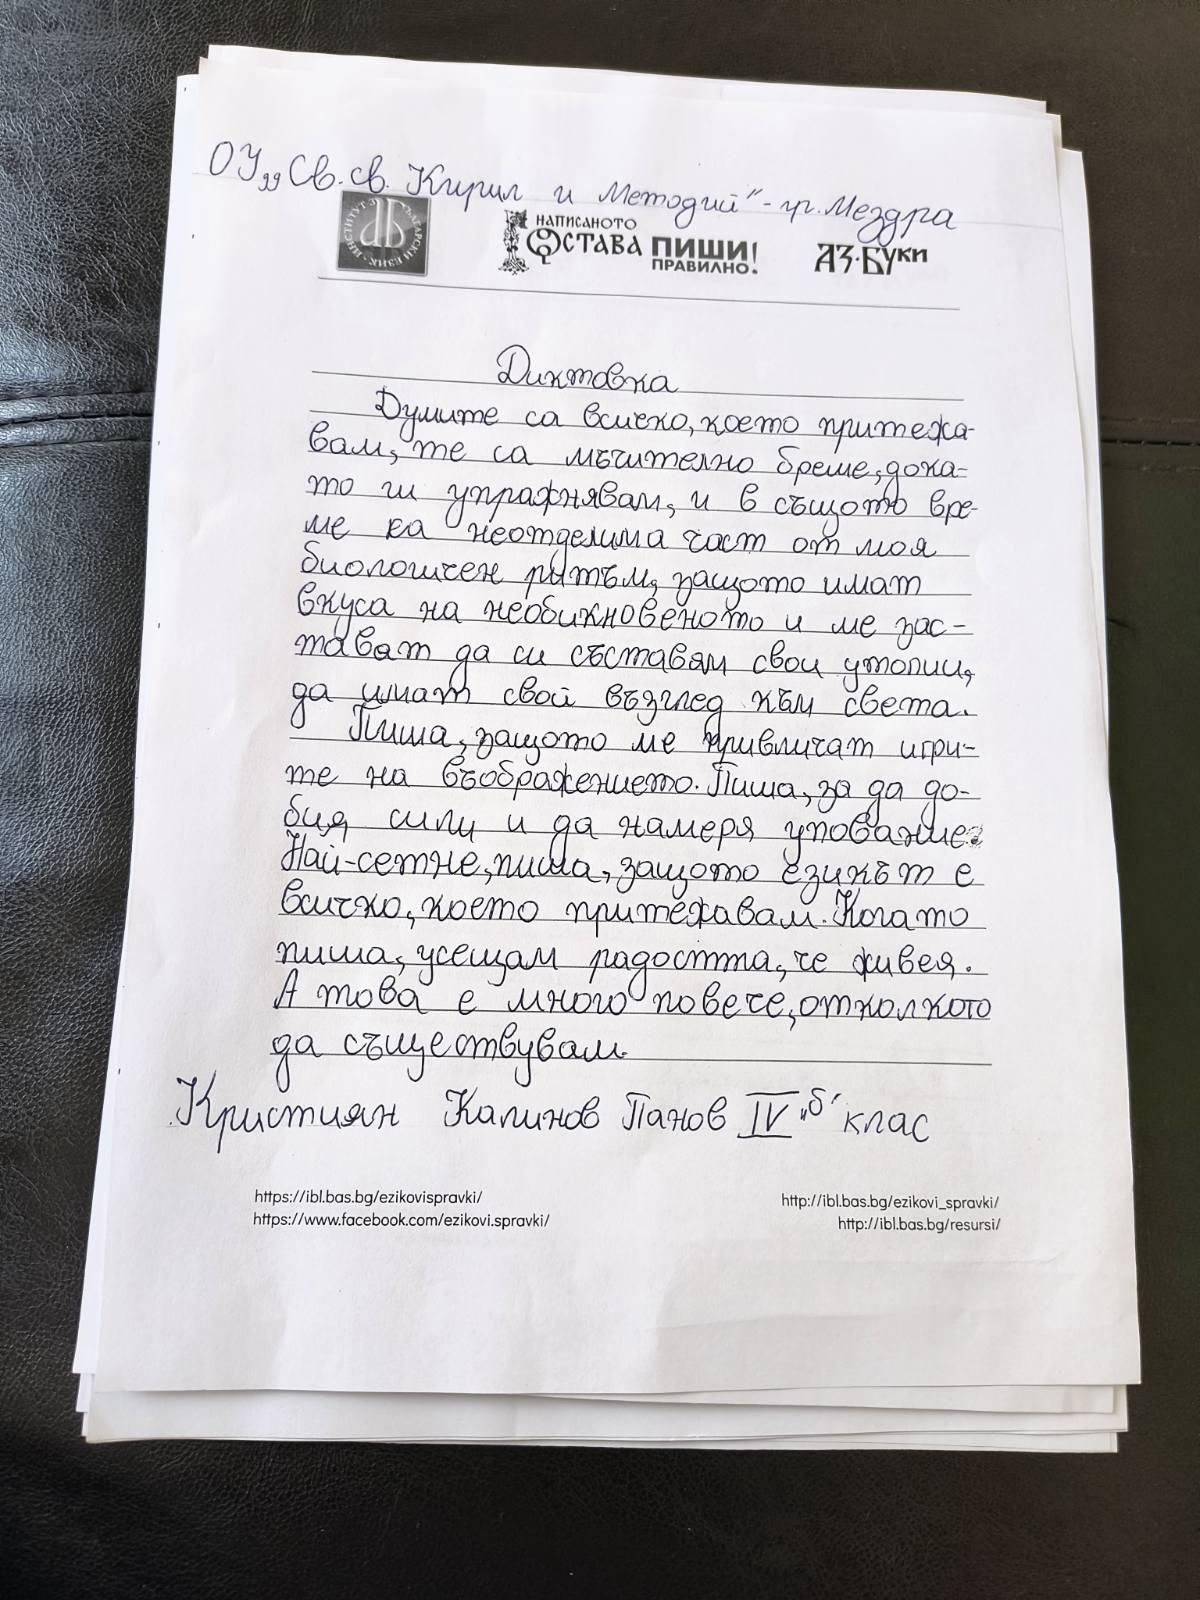 ОУ „Св. св. Кирил и Методий“ - гр. Мездра
ИНСТИТУТ ЗА БЪЛГАРСКИ ЕЗИК
НАПИСАНОТО
ОСТАВА ПИШИ
ПРАВИЛНО!
АЗ·БУКИ
Диктовка
Думите са всичко, което притежа-
вам, те са мъчително бреме, дока-
то ги упражнявам, и в същото вре-
ме са неотделима част от моя
биологичен ритъм, защото имат
вкуса на необикновеното и ме зас-
тават да си съставям свои утопии,
да имат свой възглед към света.
Пиша, защото ме привличат игри-
те на въображението. Пиша, за да до-
бия сили и да намеря упование.
Най-сетне, пиша, защото езикът е
всичко, което притежавам. Когато
пиша, усещам радостта, че живея.
А това е много повече, отколкото
да съществувам.
Кристиян Калинов Панов IV „б“ клас
https://ibl.bas.bg/ezikovispravki/
http://ibl.bas.bg/ezikovi_spravki/
https://www.facebook.com/ezikovi.spravki/
http://ibl.bas.bg/resursi/